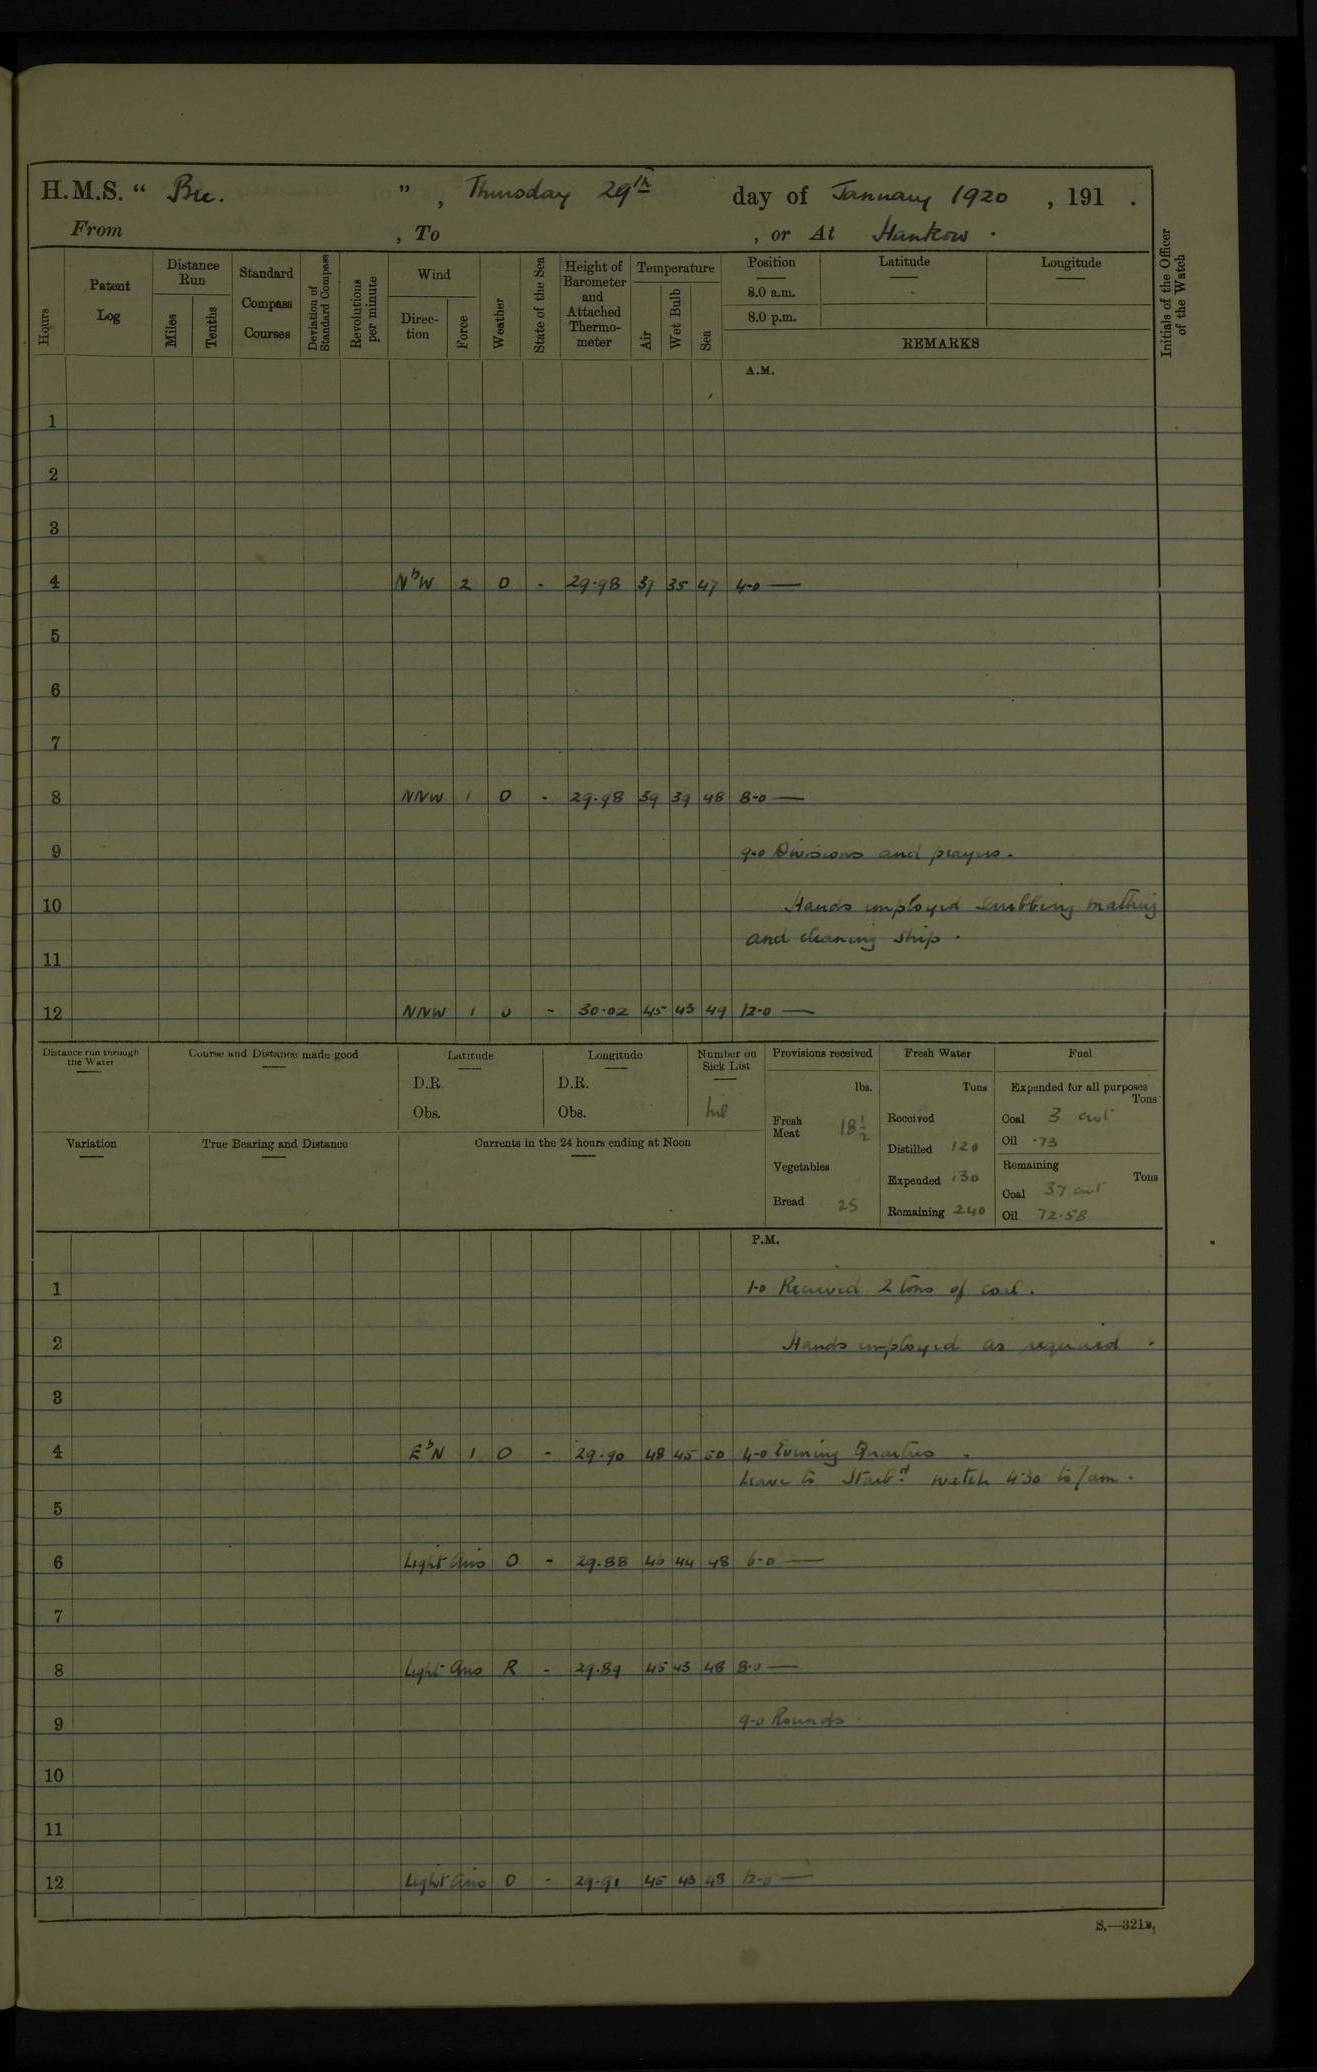 H.M.S. " Bee. ", Thursday 29th day of January 1920, 191 .
From , To , or At Hankow.
Hours
Patent Log
Distance Run
Miles
Tenths
Standard Compass Courses
Deviation of Standard Compass
Revolutions per minute
Wind
Direction
Force
Weather
State of the Sea
Height of Barometer and Attached Thermometer
Temperature
Air
Wet Bulb
Sea
Position
8.0 a.m.
8.0 p.m.
Latitude
Longitude
REMARKS
Initials of the Officer of the Watch
A.M.
1
2
3
4 NbW 2 O - 29.98 37 35 47 4-0 —
5
6
7
8 NNW 1 O - 29.98 39 39 48 8-0 —
9 9-0 Divisions and prayers.
10 Hands employed scrubbing matting
and cleaning ship.
11
12 NNW 1 O - 30.02 45 43 49 12-0 —
Distance run through the Water
Course and Distance made good
Latitude
D.R.
Obs.
Longitude
D.R.
Obs.
Number on Sick List
nil
Provisions received
lbs.
Fresh Meat 18½
Vegetables
Bread 25
Fresh Water
Tons
Received
Distilled 120
Expended 130
Remaining 240
Fuel
Expended for all purposes
Tons
Coal 3 cwt
Oil .73
Remaining
Tons
Coal 37 cwt
Oil 72.58
Variation
True Bearing and Distance
Currents in the 24 hours ending at Noon
P.M.
1 1-0 Received 2 tons of coal.
2 Hands employed as required.
3
4 EbN 1 O - 29.90 48 45 50 4-0 Evening Quarters.
Leave to Starbd watch 4.30 to 7am.
5
6 Light Airs O - 29.88 46 44 48 6-0 —
7
8 Light Airs R - 29.89 45 43 48 8-0 —
9 9-0 Rounds.
10
11
12 Light Airs O - 29.91 45 43 48 12-0 —